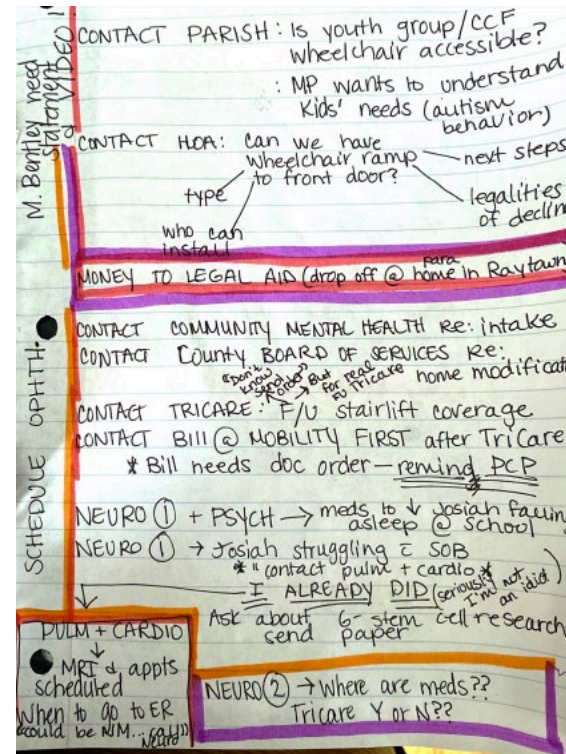 M. Bentley need
statement
VIDEO!
CONTACT PARISH: Is youth group/CCF
wheelchair accessible?
: MP wants to understand
Kids' needs (autism
behavior)
CONTACT HOA: Can we have
wheelchair ramp
to front door?
next steps
type
legalities
of declin
who can
install
para
MONEY TO LEGAL AID (drop off @ home in Raytown
SCHEDULE OPHTH.
CONTACT COMMUNITY MENTAL HEALTH Re: intake
CONTACT County BOARD OF SERVICES Re:
home modificat
"Don't
know
send
order"
→ But
for real
FU Tricare
CONTACT TRICARE: F/U stairlift coverage
CONTACT Bill @ MOBILITY FIRST after TriCare
* Bill needs doc order - remind PCP
NEURO ① + PSYCH → meds to ↓ Josiah falling
asleep @ school
NEURO ① → Josiah struggling c̄ SOB
* "contact pulm + cardio"*
I ALREADY DID (seriously
I'm not
an idiot)
Ask about 6-stem cell research
send paper
PULM + CARDIO
↓
MRI & appts
scheduled
When to go to ER
"could be NM... call"
Neuro
NEURO ② → Where are meds??
Tricare Y or N??